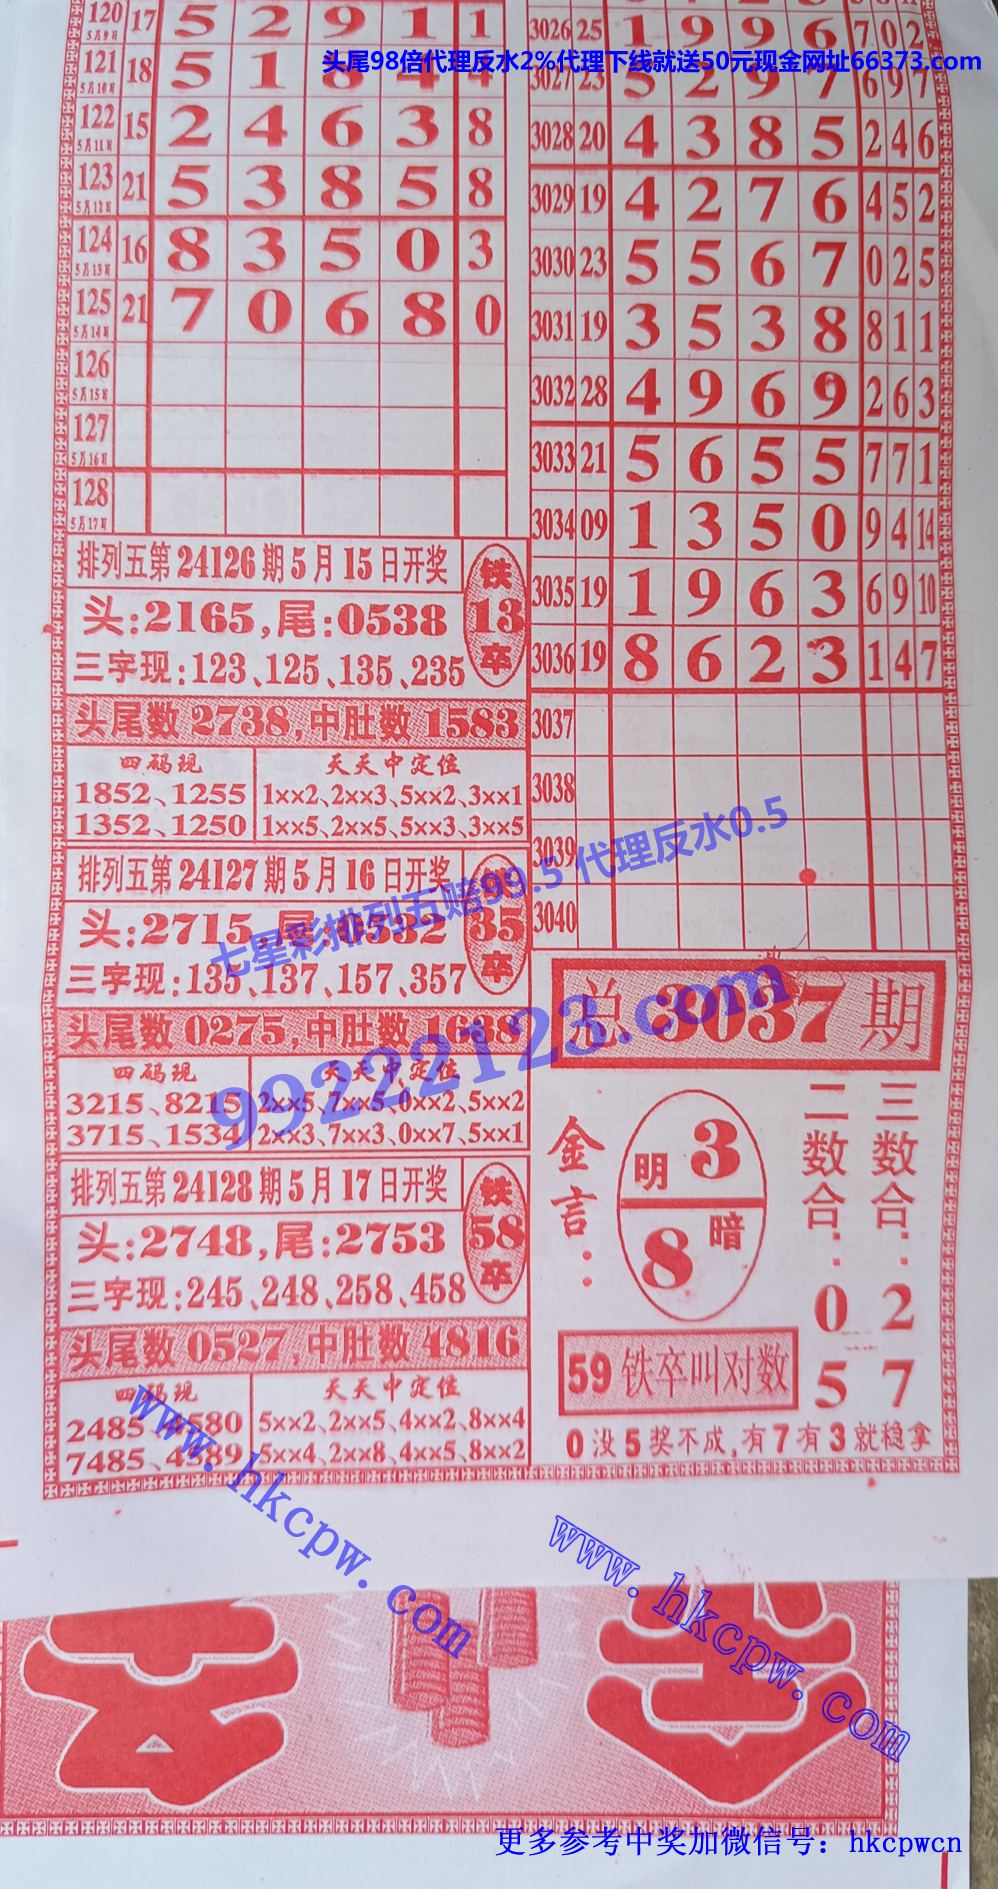 120 5月9日 17 5 2 9 1 1
121 5月10日 18 5 1 8 4 4
122 5月11日 15 2 4 6 3 8
123 5月12日 21 5 3 8 5 8
124 5月13日 16 8 3 5 0 3
125 5月14日 21 7 0 6 8 0
126 5月15日
127 5月16日
128 5月17日
排列五第24126期5月15日开奖
头:2165,尾:0538
三字现:123、125、135、235
铁
13
卒
头尾数2738,中肚数1583
四码现
1852、1255
1352、1250
天天中定位
1××2、2××3、5××2、3××1
1××5、2××5、5××3、3××5
排列五第24127期5月16日开奖
头:2715,尾:0532
三字现:135、137、157、357
35
卒
头尾数0275,中肚数1638
四码现
3215、8215
3715、1534
天天中定位
2××5、7××5、0××2、5××2
2××3、7××3、0××7、5××1
排列五第24128期5月17日开奖
头:2748,尾:2753
三字现:245、248、258、458
铁
58
卒
头尾数0527,中肚数4816
四码现
2485、4580
7485、4589
天天中定位
5××2、2××5、4××2、8××4
5××4、2××8、4××5、8××2
3026 25 1 9 9 6 7 0 2
3027 23 5 2 9 7 6 9 7
3028 20 4 3 8 5 2 4 6
3029 19 4 2 7 6 4 5 2
3030 23 5 5 6 7 0 2 5
3031 19 3 5 3 8 8 1 1
3032 28 4 9 6 9 2 6 3
3033 21 5 6 5 5 7 7 1
3034 09 1 3 5 0 9 4 14
3035 19 1 9 6 3 6 9 10
3036 19 8 6 2 3 1 4 7
3037
3038
3039
3040
总3037期
金言:
明 3
8 暗
二数合:05
三数合:27
59铁卒叫对数
0没5奖不成,有7有3就稳拿
头尾98倍代理反水2%代理下线就送50元现金网址66373.com
七星彩排列五赔99.5 代理反水0.5
99222123.com
www.hkcpw.com
www.hkcpw.com
更多参考中奖加微信号：hkcpwcn